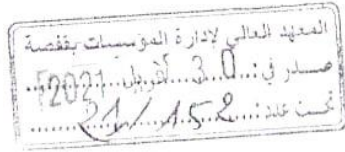 المعهد العالي لإدارة المؤسسات بقفصة
صدر في: 30 أفريل 2021
تحت عدد: 21/152